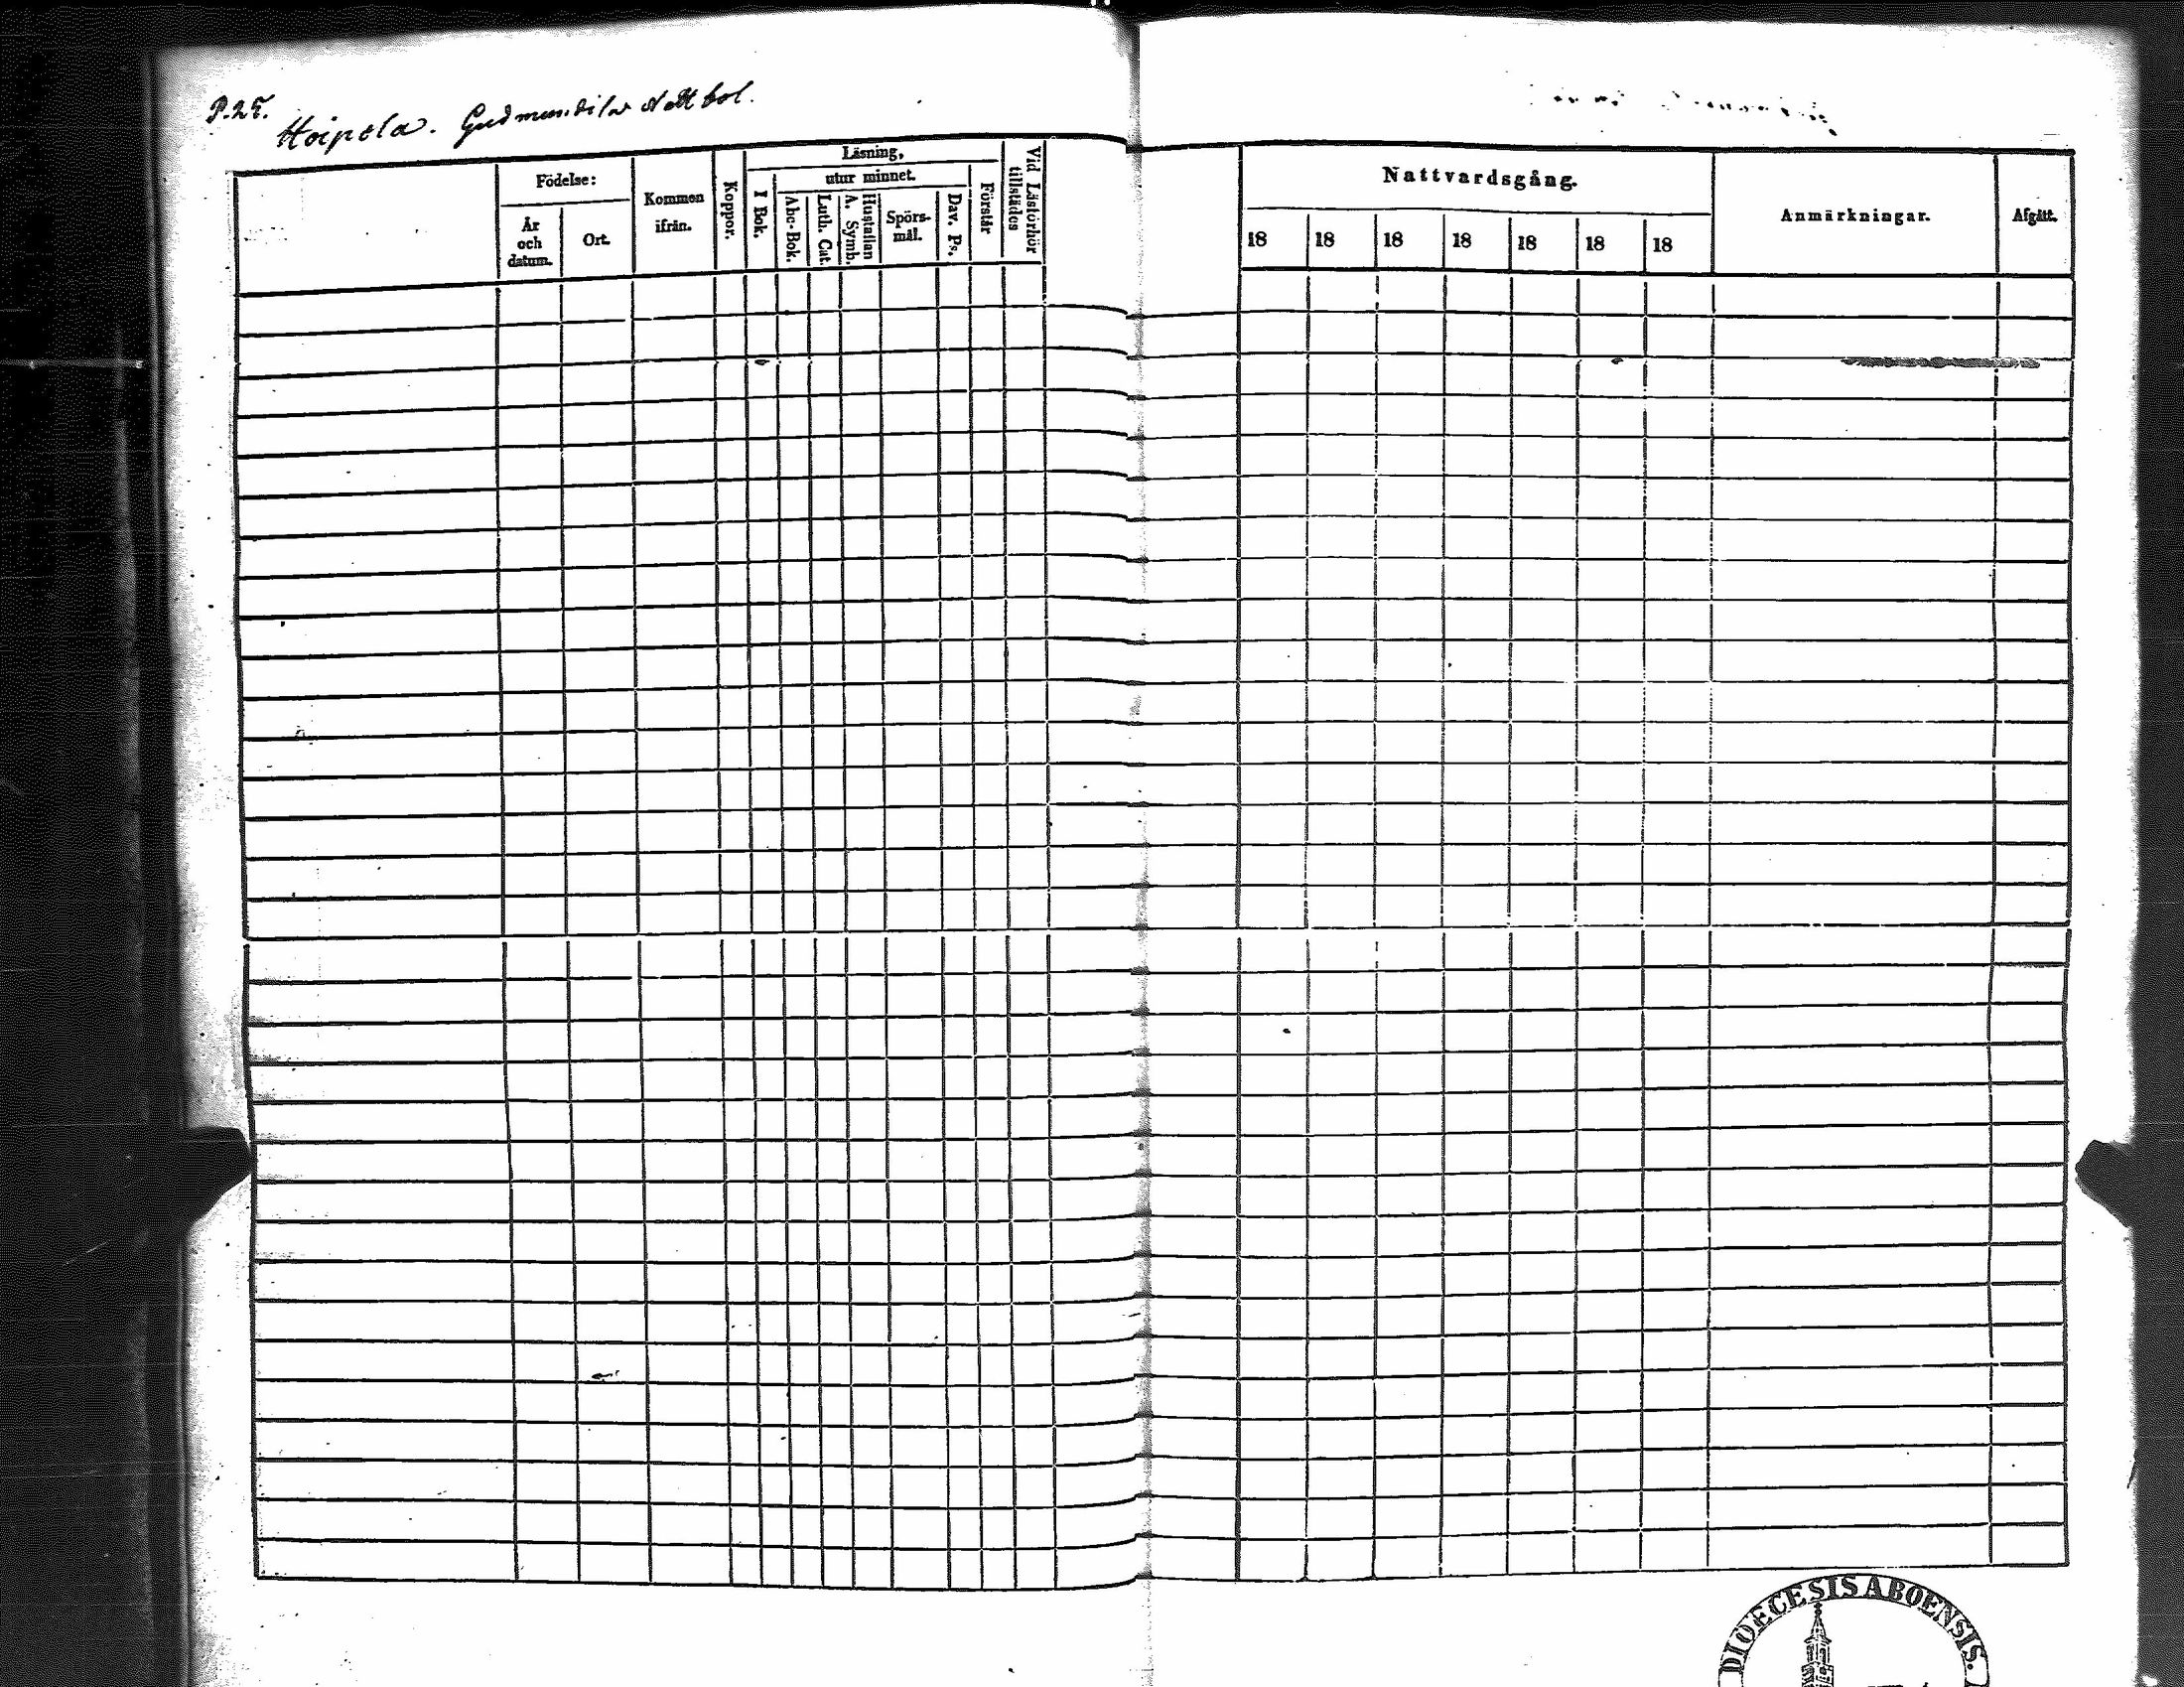 P. 25.
Hoipola. Gudmundila Nattbol.
Födelse:
År och datum.
Ort.
Kommen ifrån.
Koppor.
Läsning,
I Bok.
utur minnet.
Abc-Bok.
Luth. Cat.
Hustaflan A. Symb.
Spörs-mål.
Dav. Ps.
Förstår
Vid Läsförhör tillstädes
Nattvardsgång.
18 18 18 18 18 18 18
Anmärkningar.
Afgått.
DIOECESIS ABOENSIS.